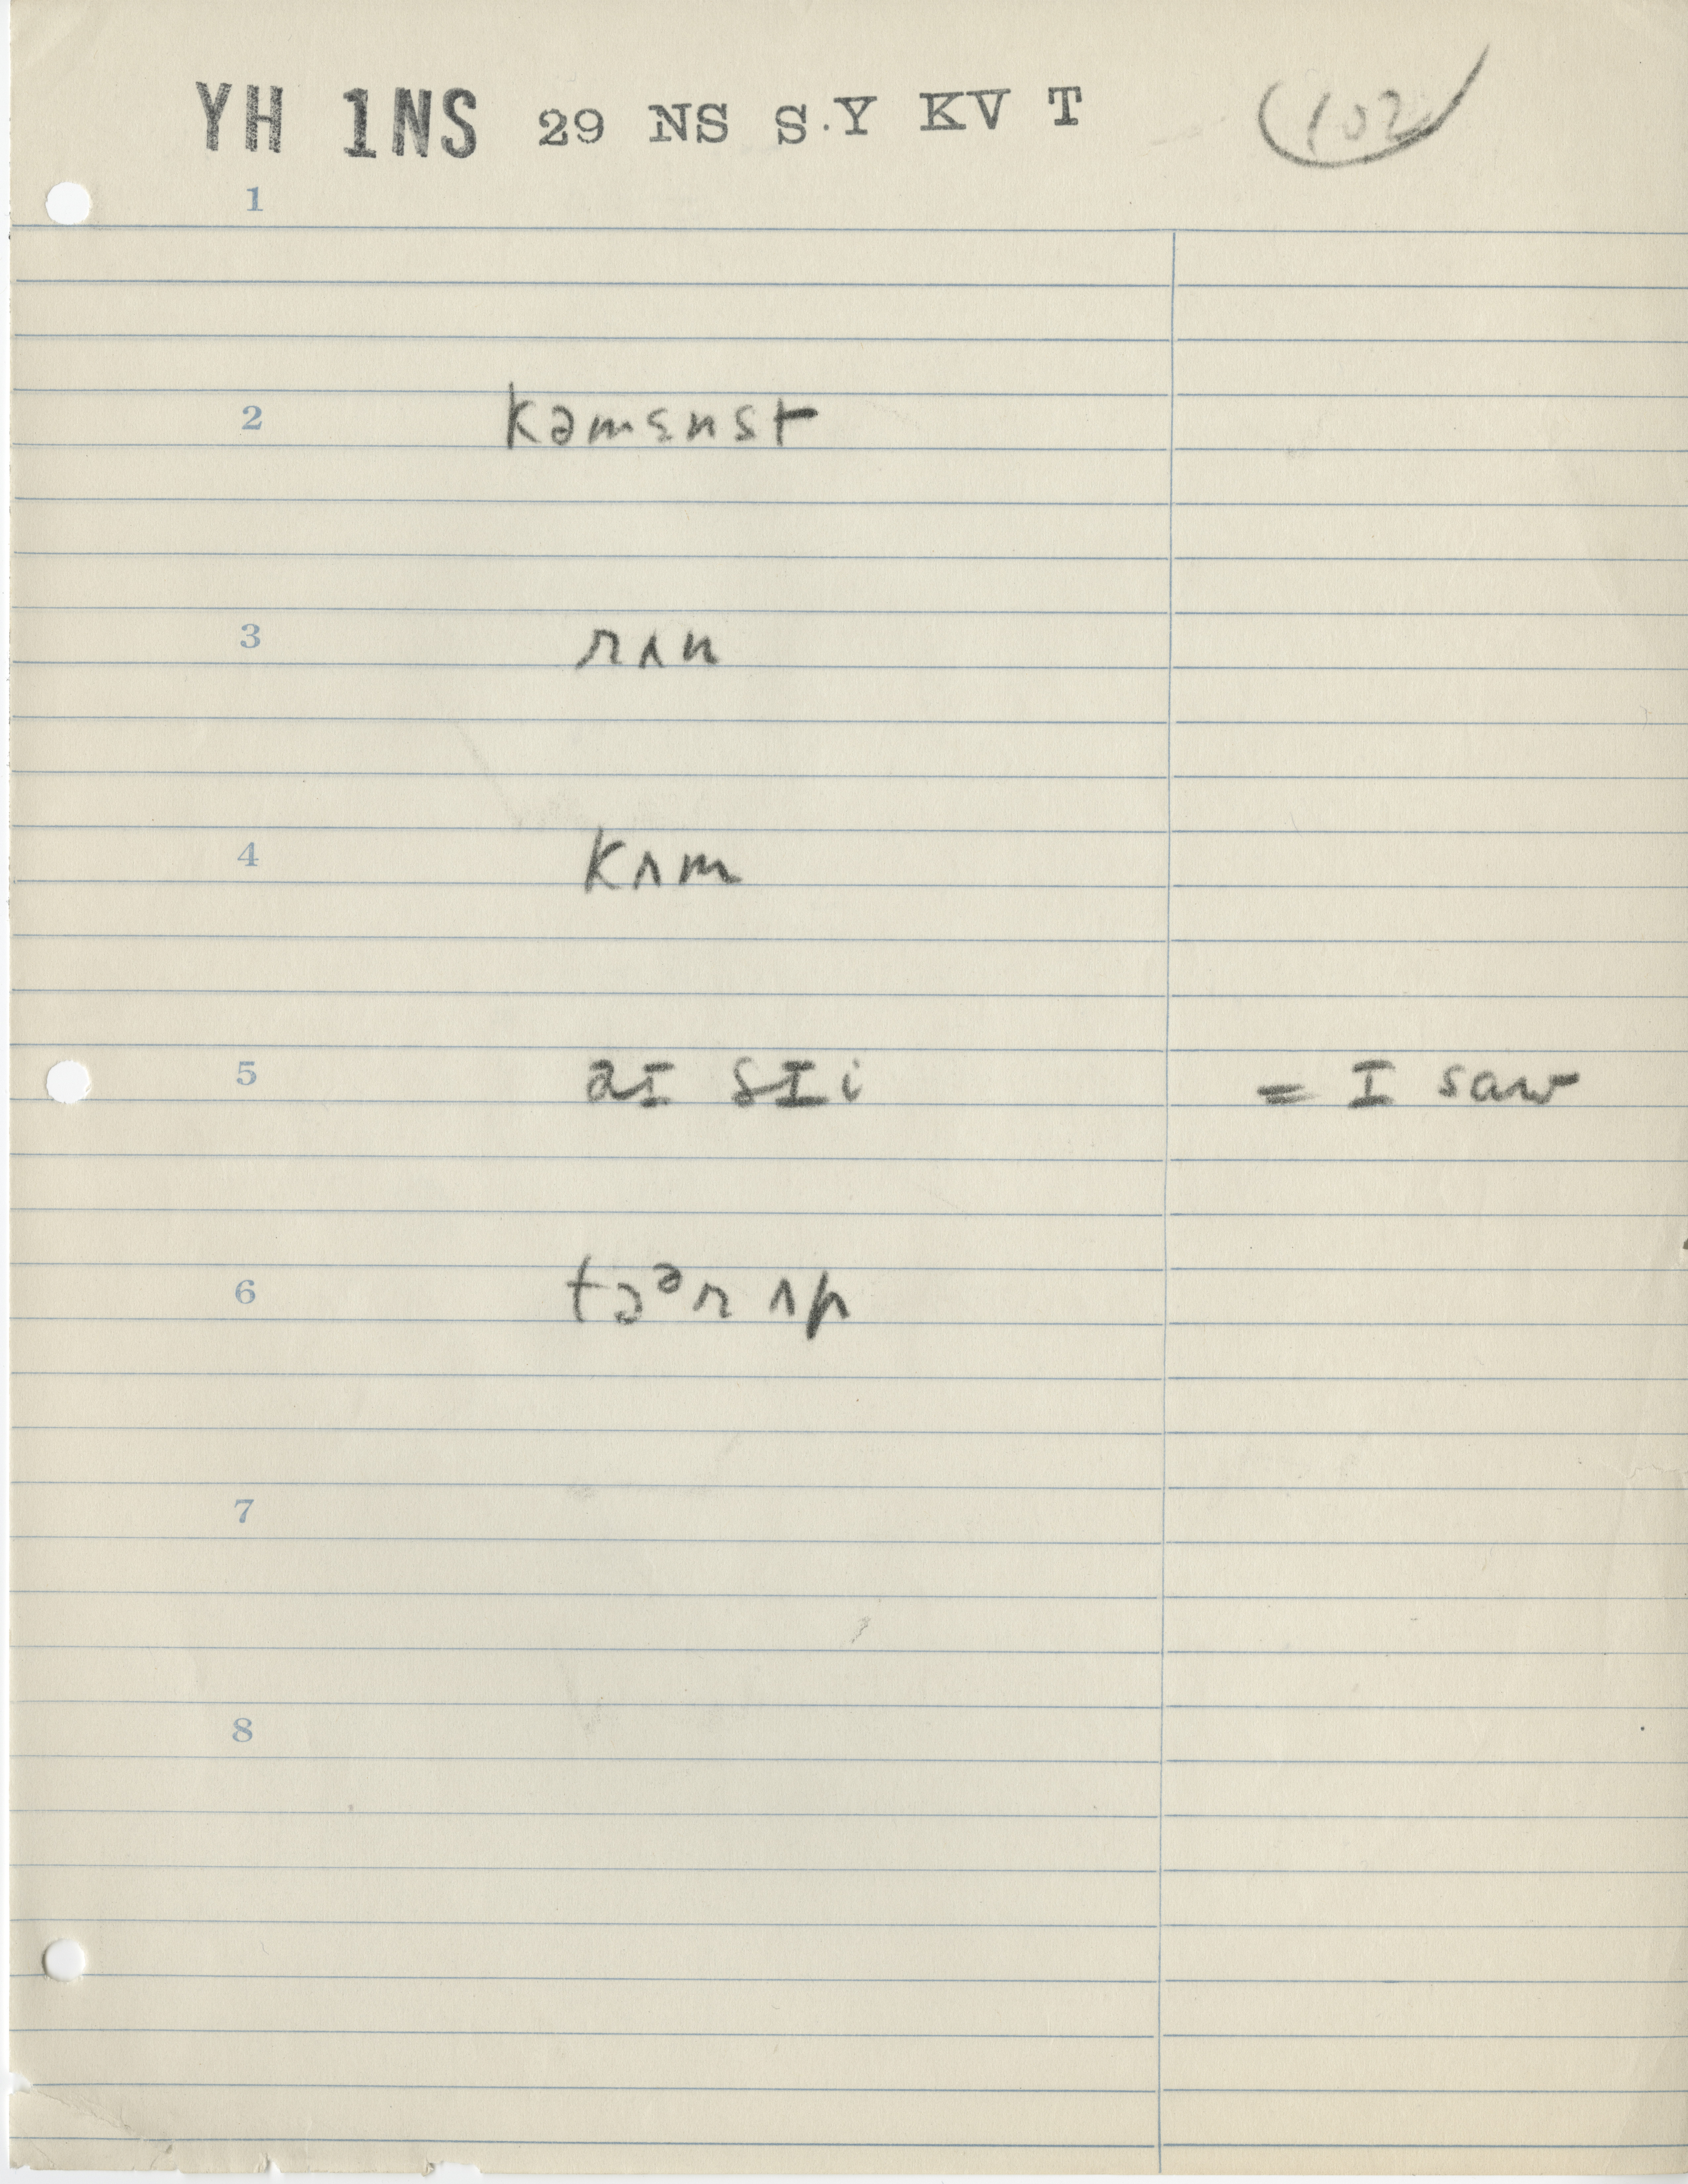 YH 1NS 29 NS S.Y KV T 102
1
2 kəmɛnst
3 rʌn
4 kʌm
5 aɪ sɪi = I saw
6 tɔᵊr ʌp
7
8